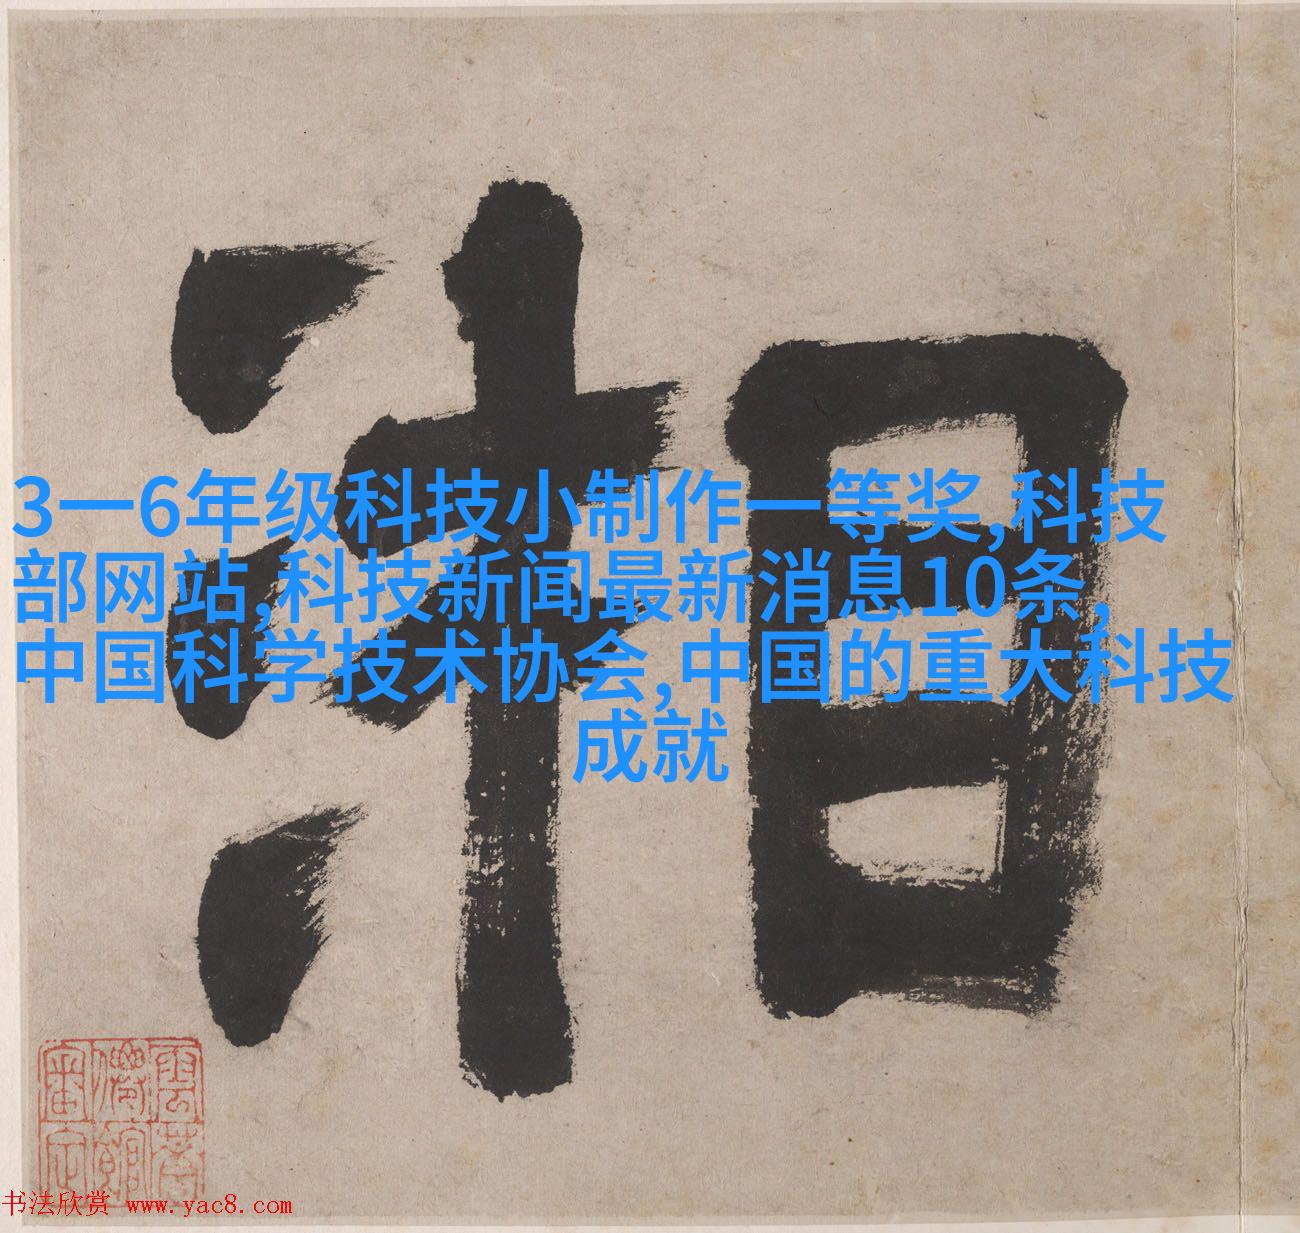 湘
3一6年级科技小制作一等奖,科技
部网站,科技新闻最新消息10条,
中国科学技术协会,中国的重大科技
成就
书法欣赏 www.yac8.com